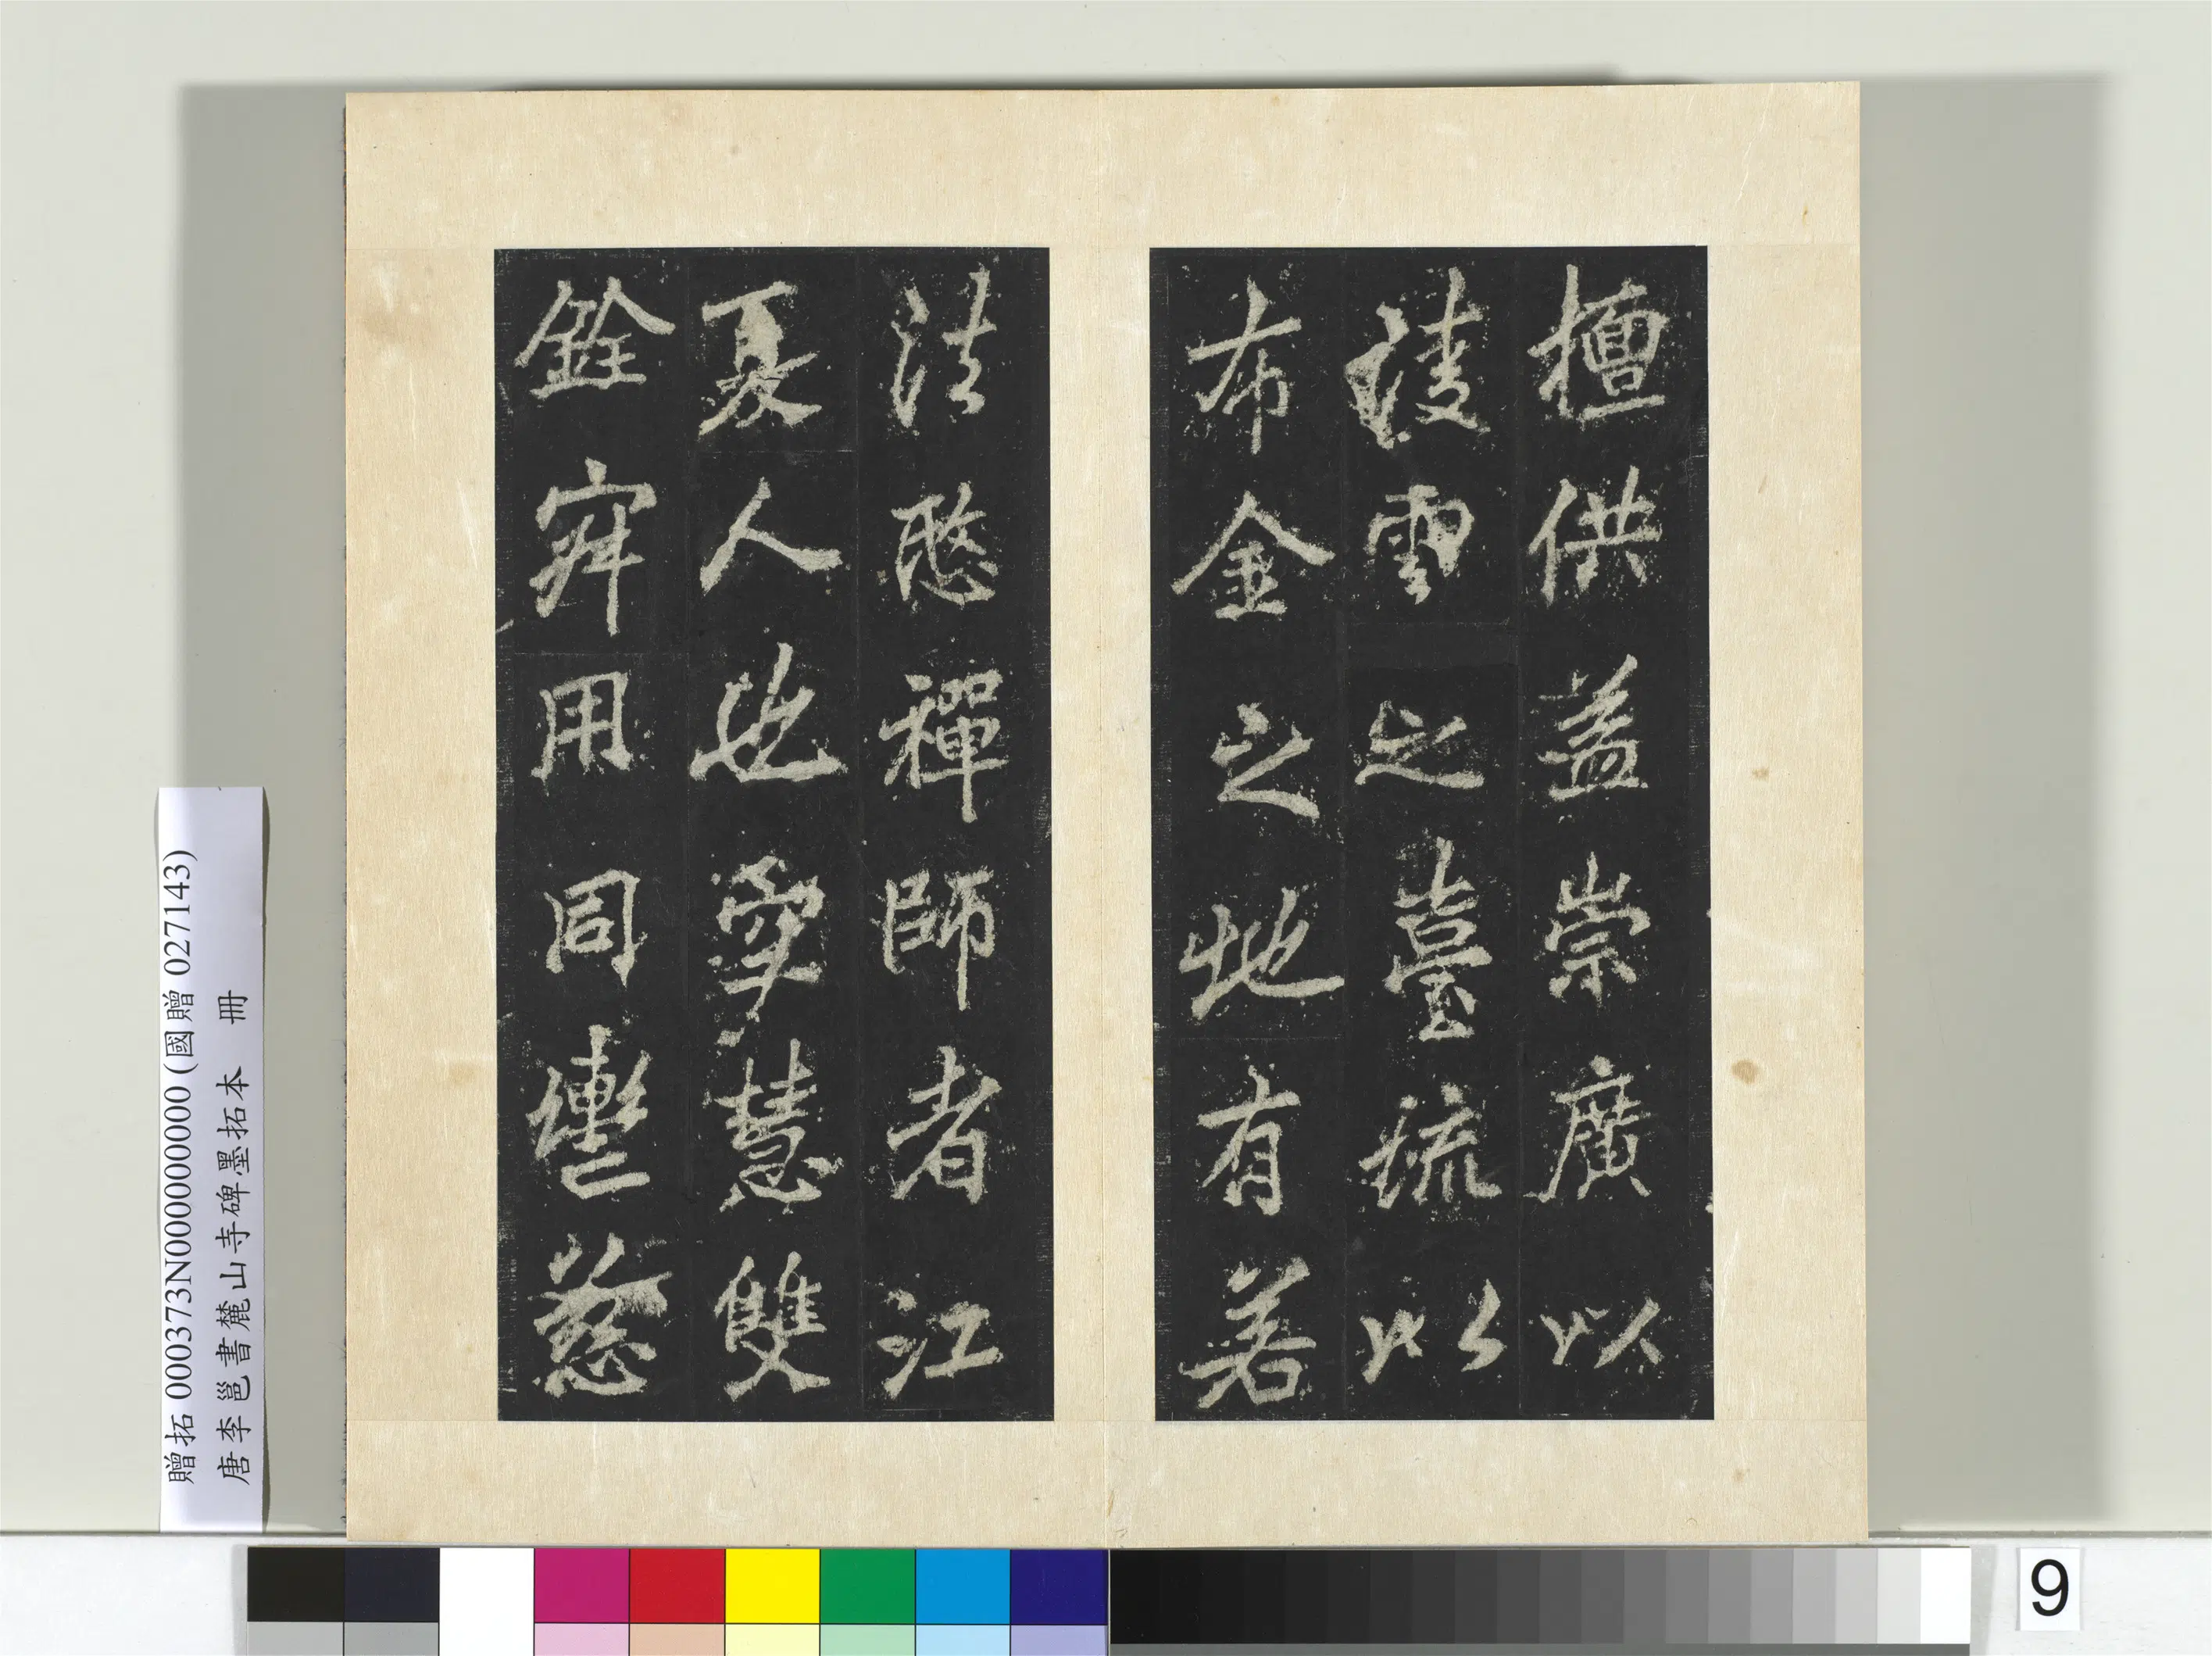 檀供益崇廣以
淩雲之臺疏以
布金之地有若
法愍禪師者江
夏人也慧雙
銓寂用同轡慈
贈拓 000373N000000000 (國贈 027143)
唐李邕書麓山寺碑墨拓本 冊
9